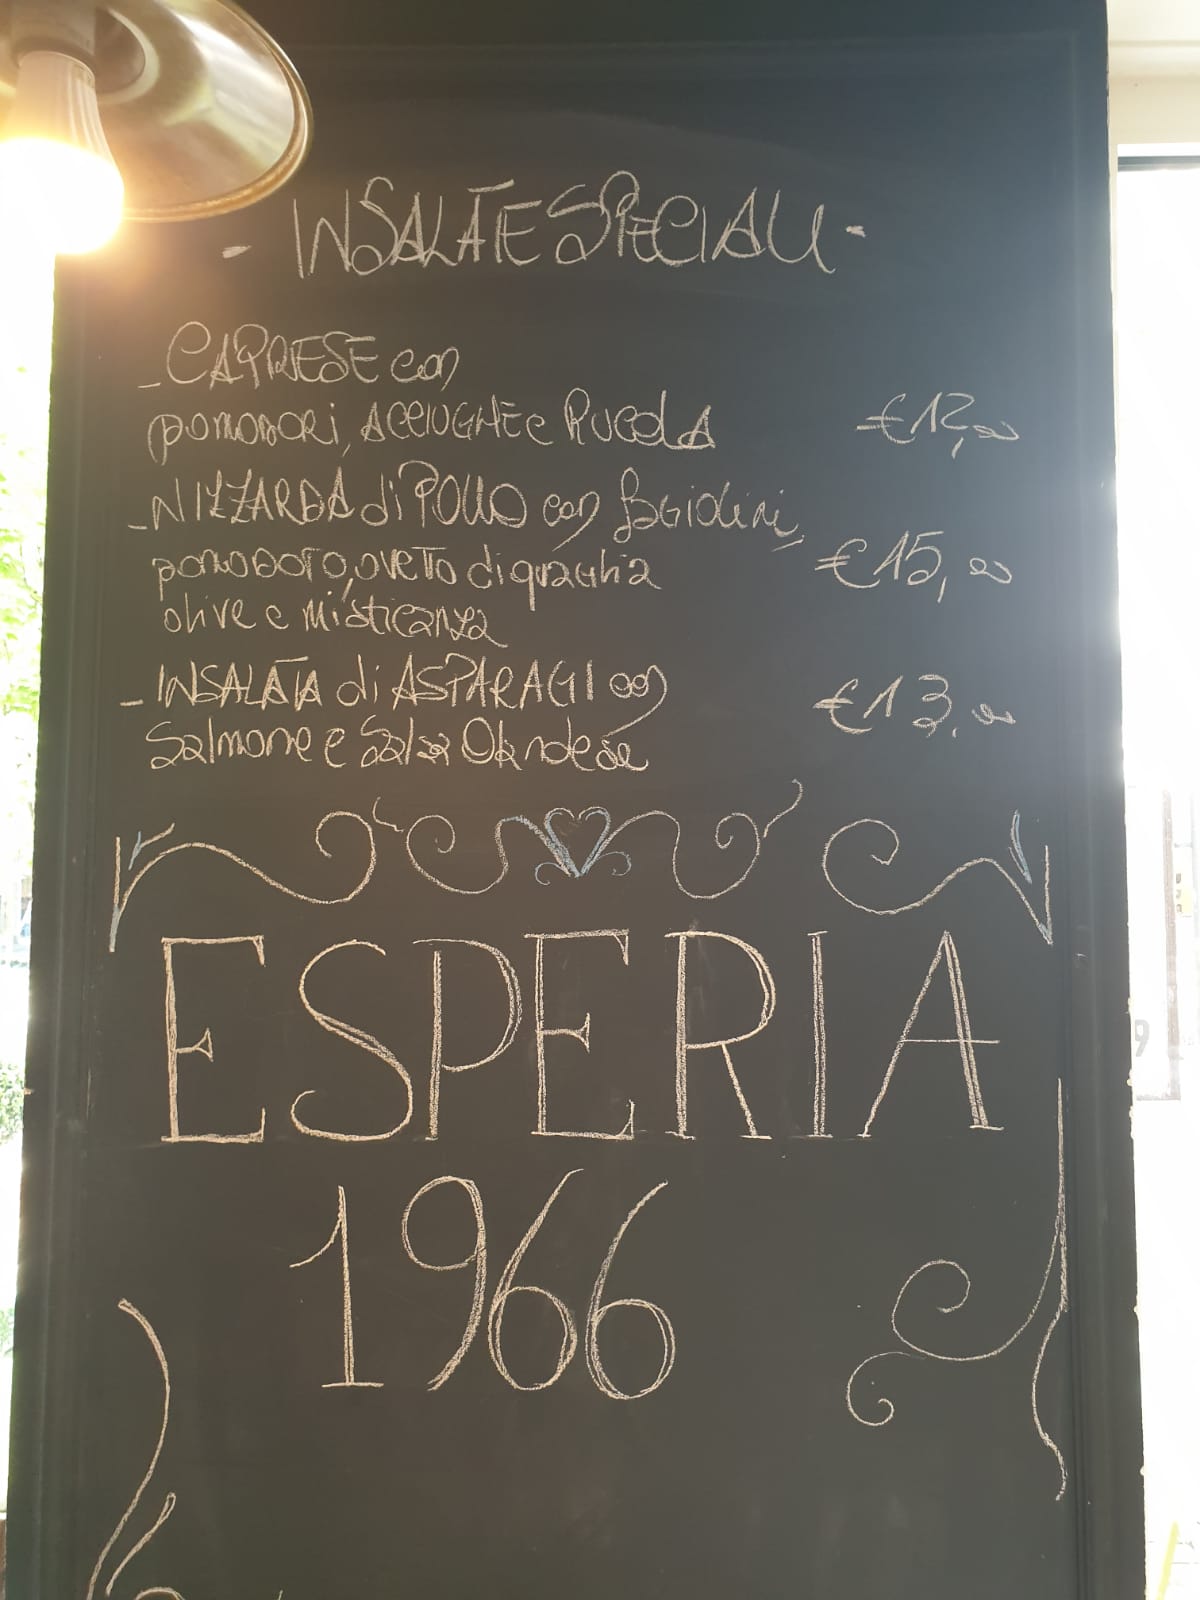 - INSALATE SPECIALI -
- CAPRESE con
pomodori, ACCIUGHE e RUCOLA €12,00
- NIZZARDA di POLLO con fagiolini,
pomodoro, ovetto di quaglia €15,00
olive e misticanza
- INSALATA di ASPARAGI con €13,00
Salmone e Salsa Olandese
ESPERIA
1966